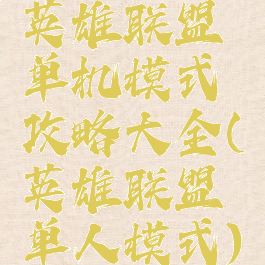 英雄联盟
单机模式
攻略大全(
英雄联盟
单人模式)